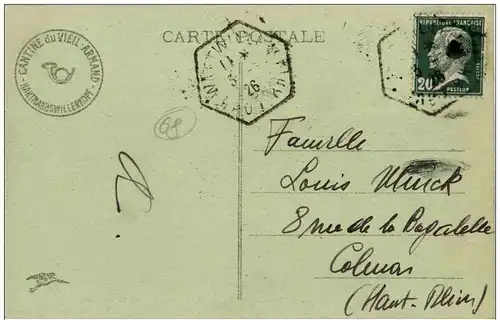 CARTE POSTALE
CANTINE du VIEIL-ARMAND
HARTMANNSWILLERKOPF
11
5
26
REPUBLIQUE FRANÇAISE
POSTES
20c
PASTEUR
68
Famille
Louis Munck
8 rue de la Bagatelle
Colmar
(Haut-Rhin)